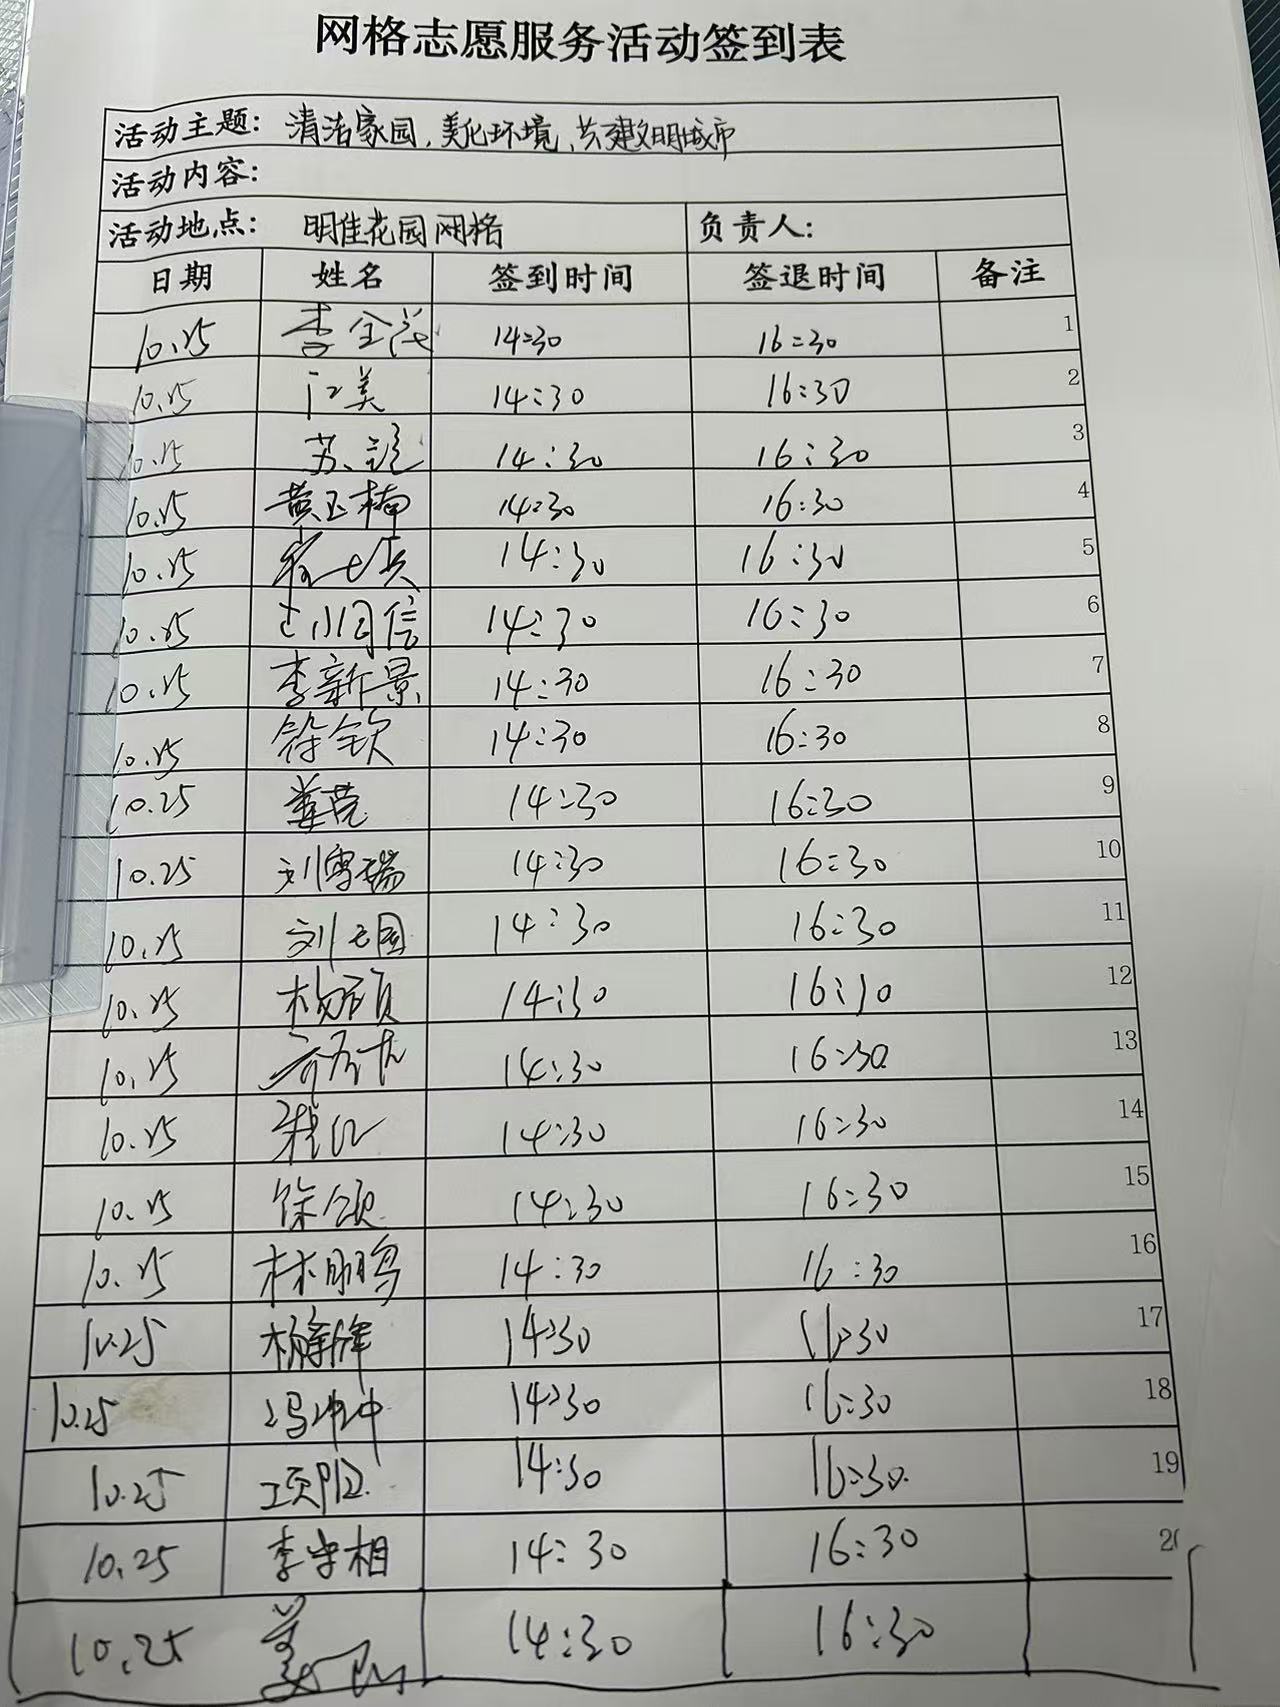 网格志愿服务活动签到表
活动主题: 清洁家园,美化环境、共建文明城市
活动内容:
活动地点: 明佳花园网格 负责人:
日期 姓名 签到时间 签退时间 备注
10.25 李全茂 14:30 16:30 1
10.25 江美 14:30 16:30 2
10.25 苏 14:30 16:30 3
10.25 黄玉楠 14:30 16:30 4
10.25 14:30 16:30 5
10.25 14:30 16:30 6
10.25 李新景 14:30 16:30 7
10.25 徐钦 14:30 16:30 8
10.25 14:30 16:30 9
10.25 刘雪瑞 14:30 16:30 10
10.25 刘 14:30 16:30 11
10.25 14:30 16:30 12
10.25 14:30 16:30 13
10.25 14:30 16:30 14
10.25 徐颂 14:30 16:30 15
10.25 林鹏 14:30 16:30 16
10.25 杨 14:30 16:30 17
10.25 冯冲冲 14:30 16:30 18
10.25 项阳 14:30 16:30 19
10.25 李守相 14:30 16:30 20
10.25 14:30 16:30